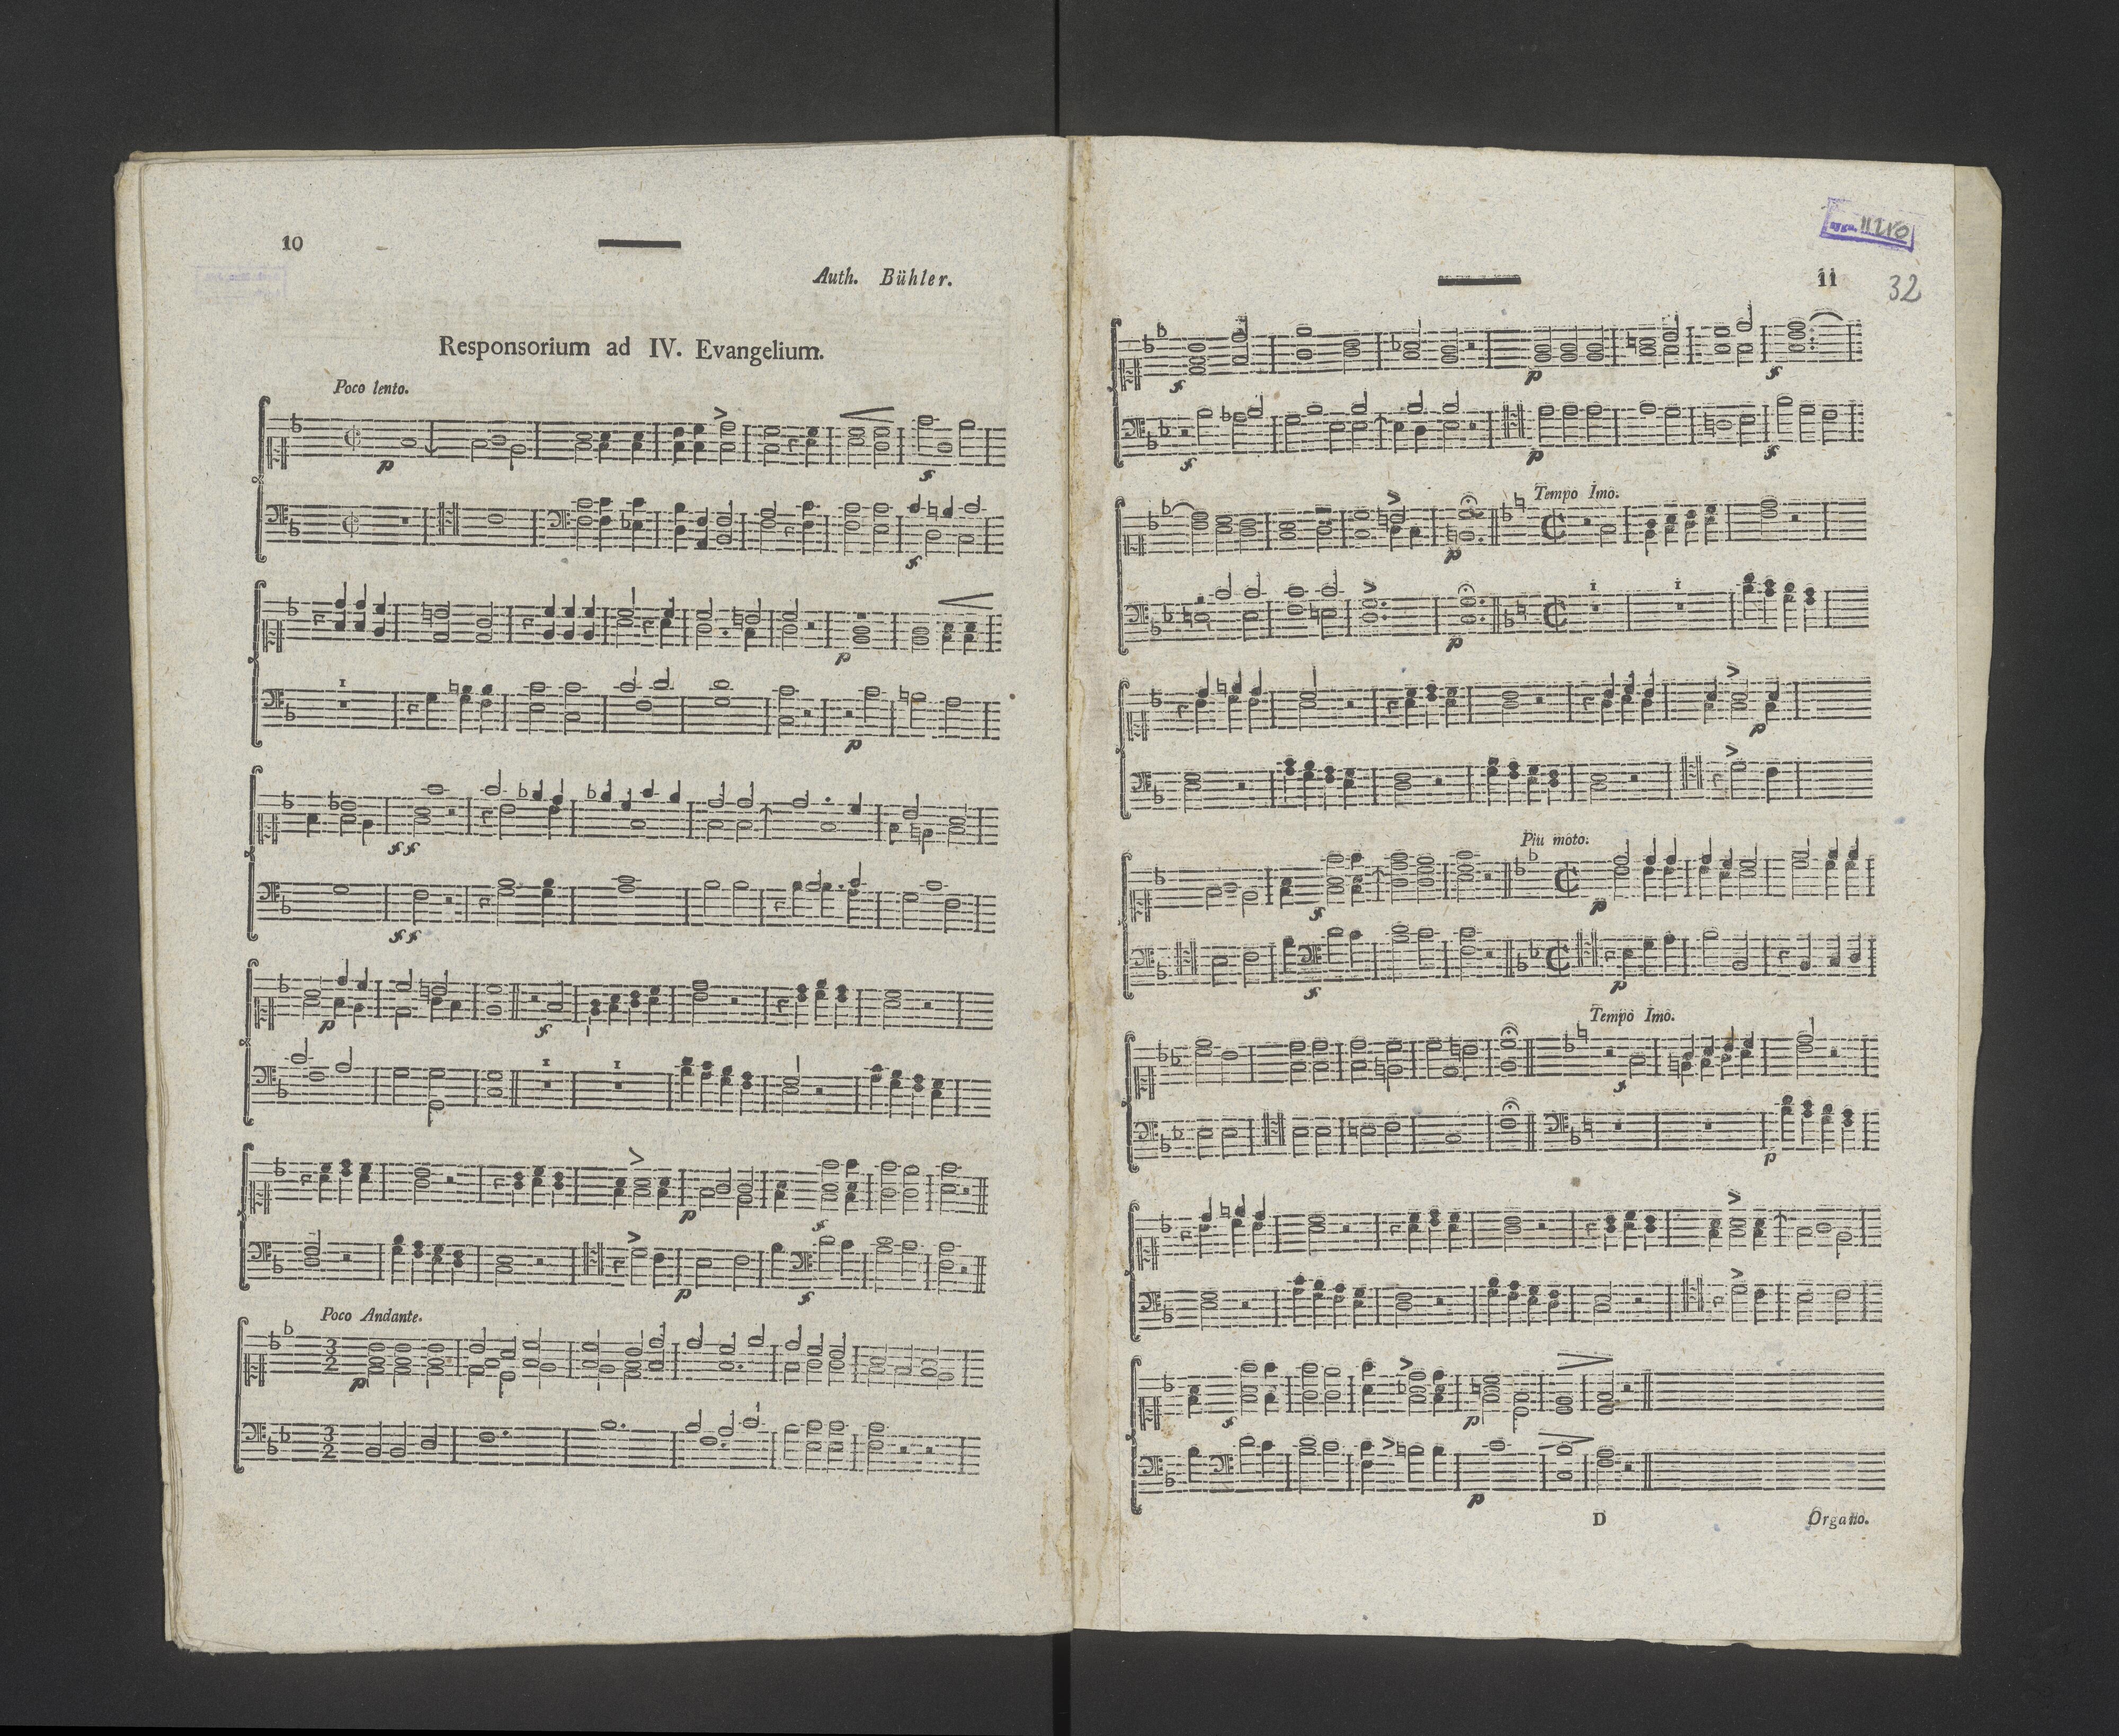 10
Auth. Bühler.
Responsorium ad IV. Evangelium.
Poco lento.
p
f
f
1
p
p
ff
ff
p
f
1
1
p
f
p
f
Poco Andante.
3
2
p
3
2
11
32
f
p
f
f
p
f
Tempo Imo.
p
1
1
p
p
Piu moto.
f
p
f
p
Tempo Imo.
f
p
f
p
p
D
Organo.